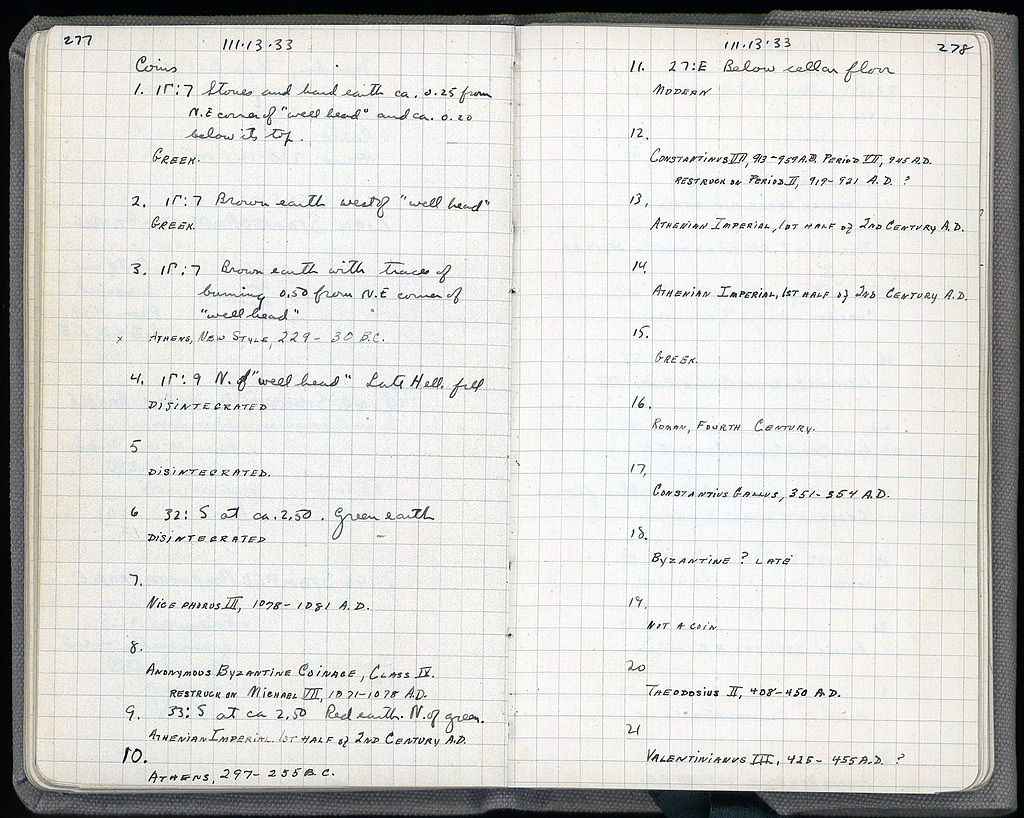 277
111·13·33
Coins
1. 1Γ:7 Stones and hard earth ca. 0.25 from
N.E corner of "well head" and ca. 0.20
below its top.
GREEK.
2. 1Γ:7 Brown earth west of "well head"
GREEK.
3. 1Γ:7 Brown earth with traces of
burning 0.50 from N.E corner of
"well head"
x ATHENS, NEW STYLE, 229-30 B.C.
4. 1Γ:9 N. of "well head" Late Hell. fill
DISINTEGRATED
5
DISINTEGRATED.
6 32:S at ca. 2.50. Green earth
DISINTEGRATED
7.
NICEPHORUS III, 1078-1081 A.D.
8.
ANONYMOUS BYZANTINE COINAGE, CLASS IX.
RESTRUCK ON MICHAEL VII, 1071-1078 A.D.
9. 33:S at ca 2.50 Red earth. N. of green.
ATHENIAN IMPERIAL. 1ST HALF of 2ND CENTURY A.D.
10.
ATHENS, 297-255 B.C.
111·13·33
278
11. 27:E Below cellar floor
MODERN
12.
CONSTANTINUS VII, 913-959 A.D. PERIOD VII, 945 A.D.
RESTRUCK ON PERIOD II, 919-921 A.D. ?
13.
ATHENIAN IMPERIAL, 1ST HALF of 2ND CENTURY A.D.
14.
ATHENIAN IMPERIAL, 1ST HALF of 2ND. CENTURY A.D.
15.
GREEK.
16.
ROMAN, FOURTH CENTURY.
17.
CONSTANTIUS GALLUS, 351-354 A.D.
18.
BYZANTINE ? LATE
19.
NOT A COIN
20
THEODOSIUS II, 408-450 A.D.
21
VALENTINIANUS III, 425-455 A.D. ?